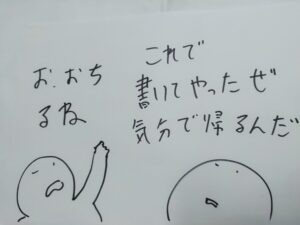 お、おち
るね
これで
書いてやったぜ
気分で帰るんだ